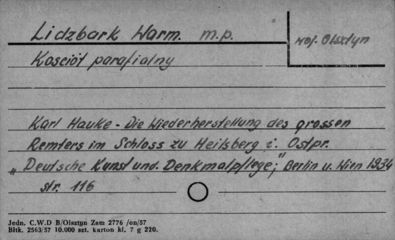 Lidzbark Warm. m.p.
woj. Olsztyn
Kościół parafialny
Karl Hauke - Die Wiederherstellung des grossen
Remters im Schloss zu Heilsberg i. Ostpr.
"Deutsche Kunst und Denkmalpflege;" Berlin u. Wien 1934
str. 116
Jedn. C.W.D B/Olsztyn Zam 2776 /en/57
Błtk. 2563/57 10.000 szt. karton kl. 7 g 220.